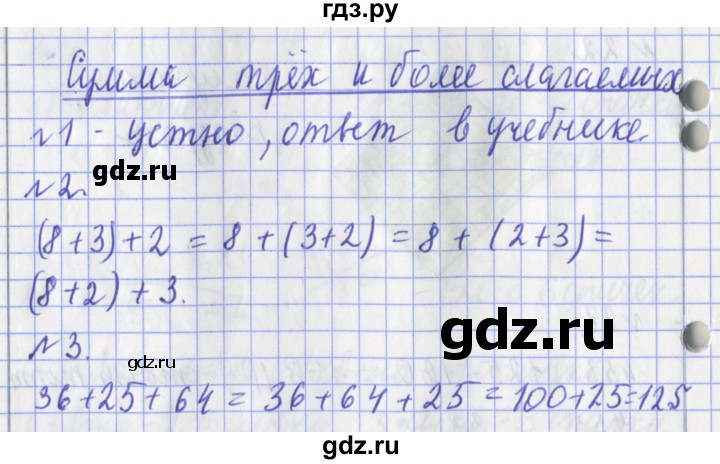 гдз.ру
Сумма трёх и более слагаемых
№1 - устно, ответ в учебнике.
gdz.ru
№2.
(8+3)+2 = 8+(3+2) = 8+(2+3)=
(8+2)+3.
gdz.ru
№3.
gdz.ru
36+25+64 = 36+64+25=100+25=125
gdz.ru